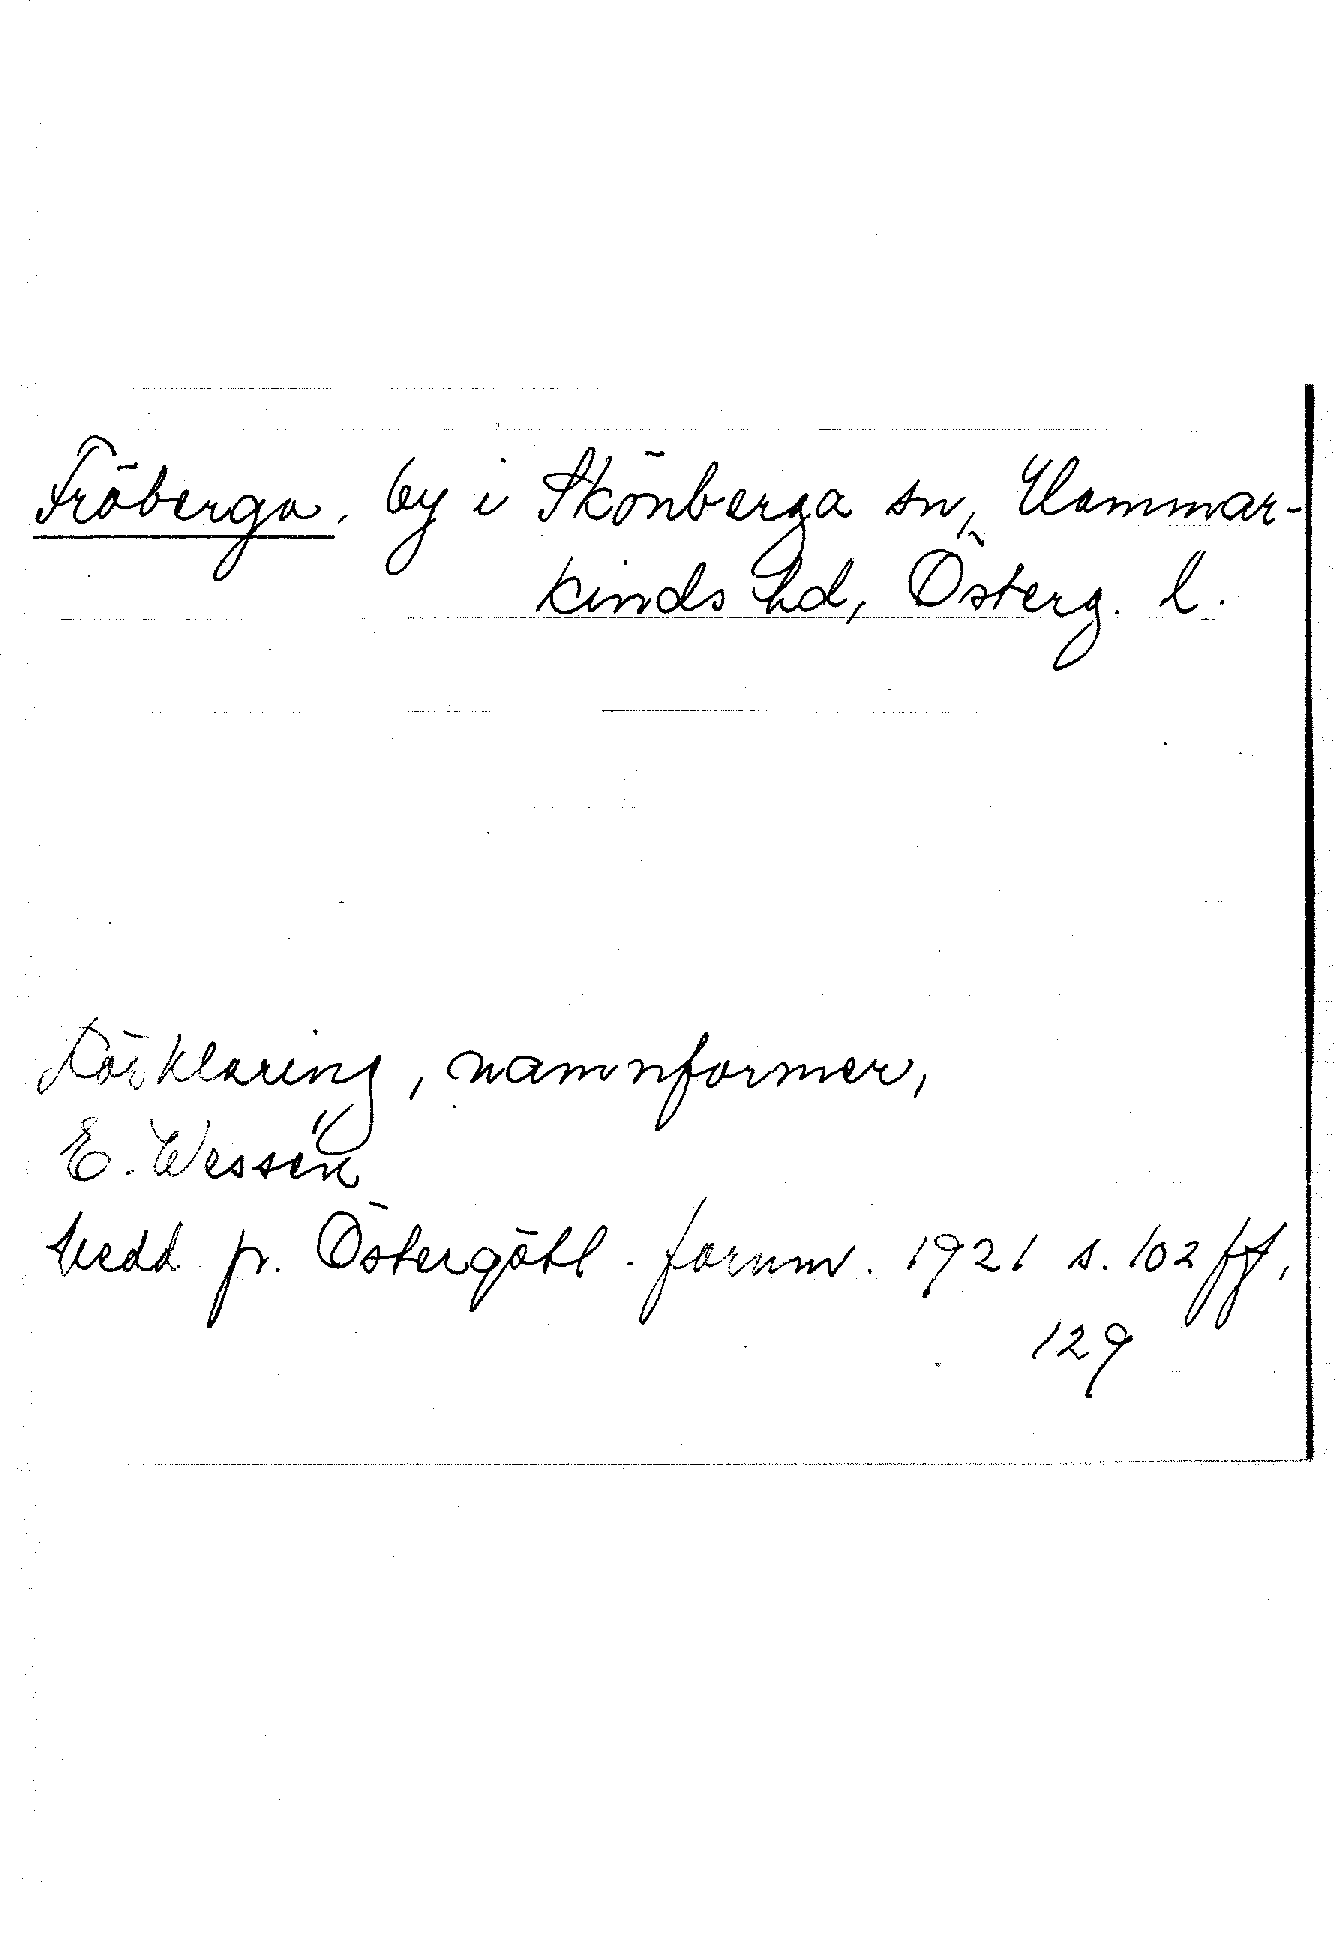 Fröberga, by i Skönberga sn, Hammar-
kinds hd, Österg. l.
Förklaring, namnformer,
E. Wessén
Medd fr. Östergötl. fornm. 1921 s. 102 ff,
129